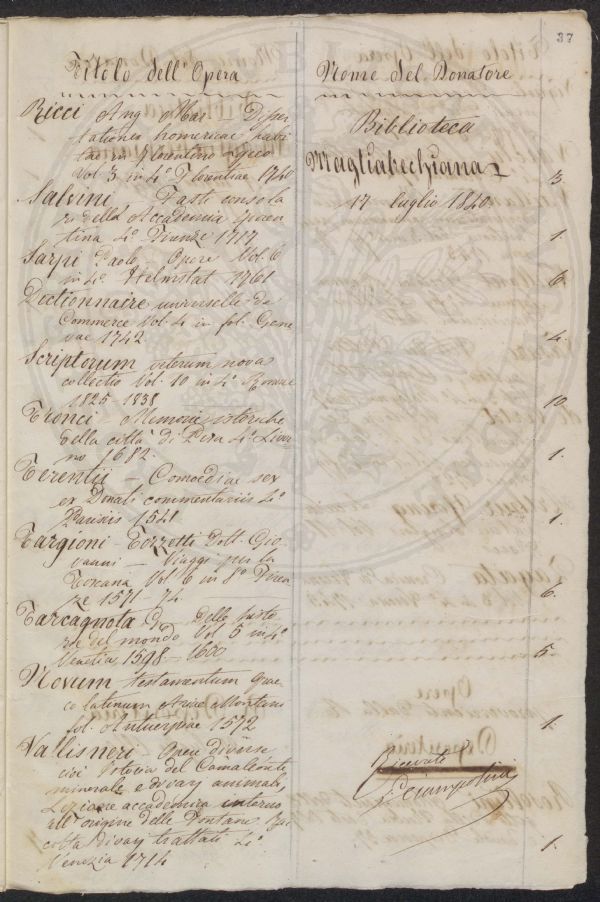 37
Titolo dell' Opera
Nome del Donatore
Ricci Ang Mar Disser
tationes homericae habi
tae in Florentino Lyceo
Vol 3 in 4° Florentiae 1740
Biblioteca
Magliabechiana
17 luglio 1840
3.
Salvini Fasti consola
ri della Accademia fioren
tina 4° Firenze 1717
1.
Sarpi Paolo – Opere Vol. 6
in 4° Helmstat 1761
6.
Dictionnaire universelle de
Commerce Vol. 4 in fol. Gene
vae 1742
4.
Scriptorum veterum nova
collectio Vol. 10 in 4° Romae
1825 – 1838
10.
Tronci – Memorie istoriche
della città di Pisa 4° Livor
no 1682.
1.
Terentii – Comoediae sex
ex Donati commentariis 4°
Parisiis 1541
1.
Targioni – Tozzetti Dott. Gio
vanni – Viaggi per la
Toscana Vol 6 in 8° Firen
ze 1571 – 74
6.
Tarcagnota G. Delle histo
rie del mondo Vol 5 in 4°
Venetia, 1598 – 1600
5.
Novum testamentum grae
co latinum Ariae Montani
fol. Antuerpiae 1572
1.
Vallisneri Opere diverse
cioè Istoria del Camaleonte
minerale e di vary animali,
Lezione accademica intorno
all' origine delle Fontane Rac
colta di vary trattati 4°
Venezia 1714
Ricevute
1.